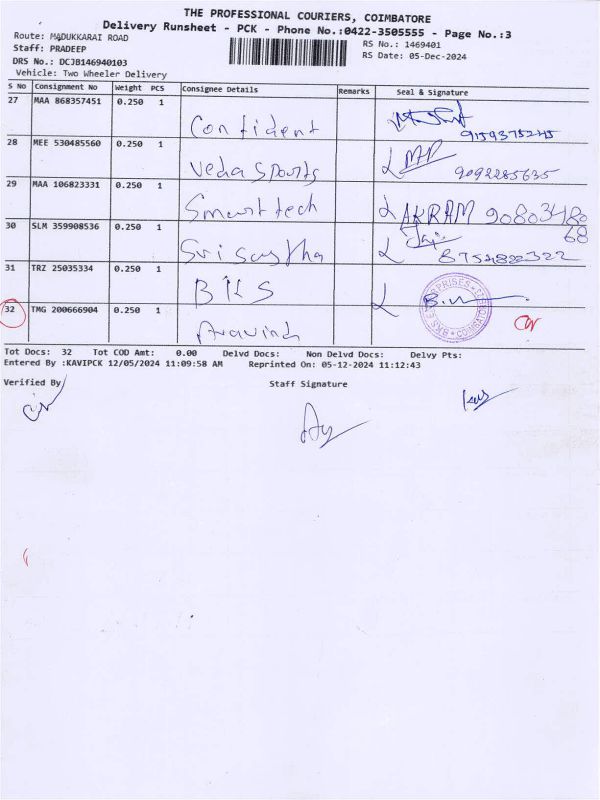 THE PROFESSIONAL COURIERS, COIMBATORE
Delivery Runsheet - PCK - Phone No.:0422-3505555 - Page No.:3
Route: MADUKKARAI ROAD
RS No.: 1469401
Staff: PRADEEP
RS Date: 05-Dec-2024
DRS No.: DCJB146940103
Vehicle: Two Wheeler Delivery
S No Consignment No Weight PCS Consignee Details Remarks Seal & Signature
27 MAA 868357451 0.250 1 Confident
28 MEE 530485560 0.250 1 Veda Sports 9092285635
29 MAA 106823331 0.250 1 Smart tech AKRAM 9080348068
30 SLM 359908536 0.250 1 Sri Sastha
31 TRZ 25035334 0.250 1 BKS
32 TMG 200666904 0.250 1 Aravind
Tot Docs: 32 Tot COD Amt: 0.00 Delvd Docs: Non Delvd Docs: Delvy Pts:
Entered By :KAVIPCK 12/05/2024 11:09:58 AM Reprinted On: 05-12-2024 11:12:43
Verified By Staff Signature